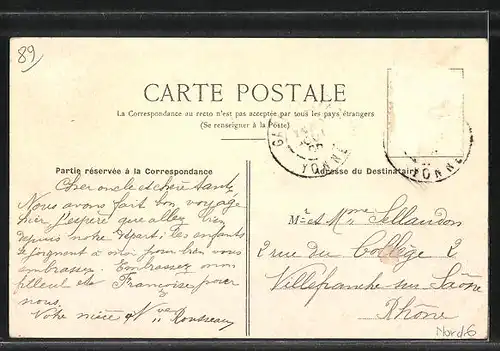 89
CARTE POSTALE
La Correspondance au recto n'est pas acceptée par tous les pays étrangers
(Se renseigner à la Poste)
YONNE
YONNE
Partie réservée à la Correspondance
Adresse du Destinataire
Cher oncle et chère tante,
Nous avons fait bon voyage
hier j'espère que allez bien
depuis notre départ; les enfants
se joignent à moi pour bien vous
embrasser. Embrassez mon
filleul et Françoise pour
nous.
Votre nièce Vve Rousseau
Mr et Mme Sellandon
2 rue du Collège 2
Villefranche-sur-Saône
Rhône
Nord/6